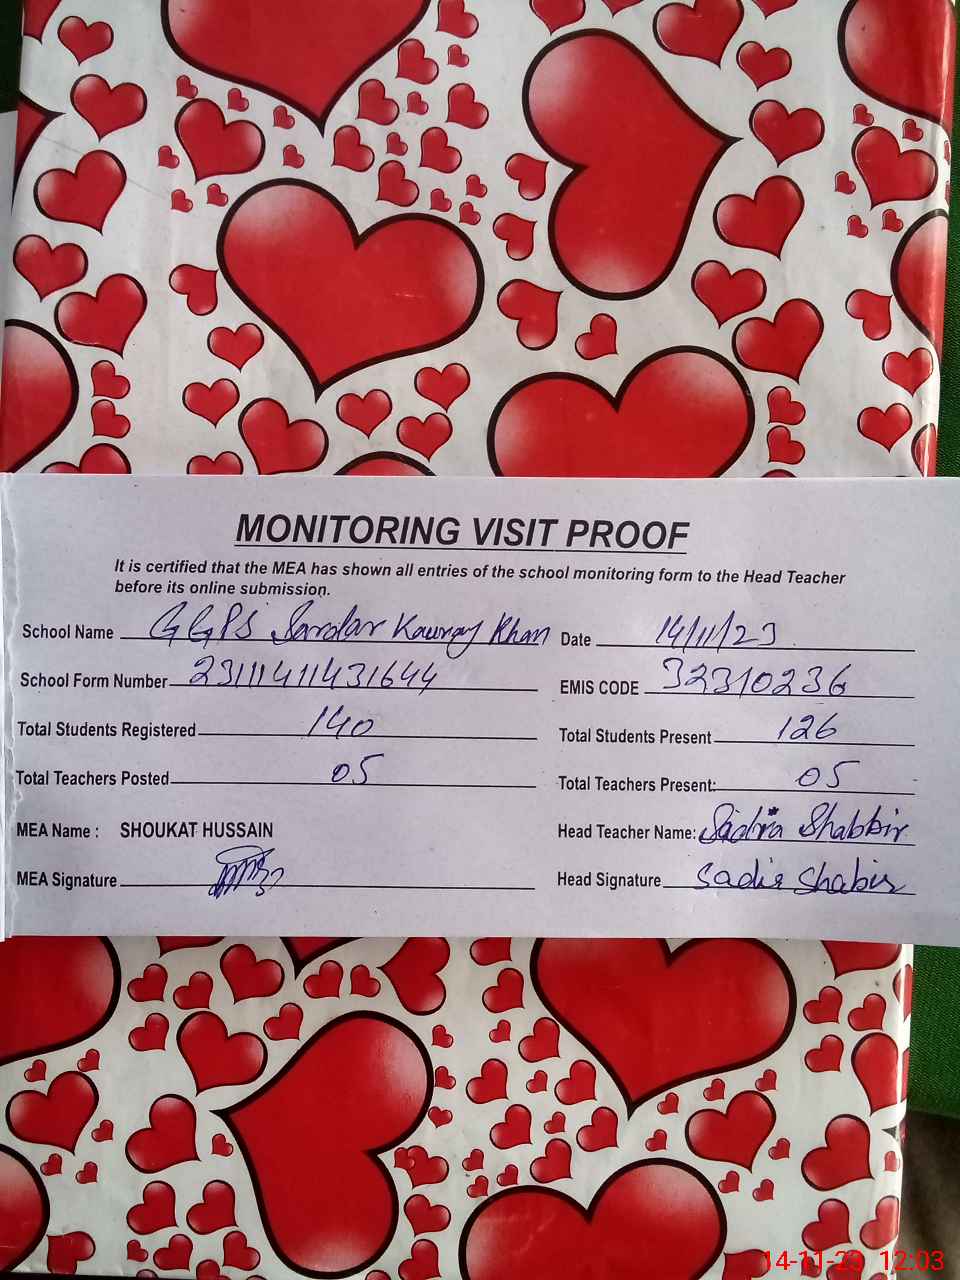 MONITORING VISIT PROOF
It is certified that the MEA has shown all entries of the school monitoring form to the Head Teacher
before its online submission.
School Name GGPS Sardar Kauray Khan Date 14/11/23
School Form Number 23111411431644 EMIS CODE 32310236
Total Students Registered 140 Total Students Present 126
Total Teachers Posted 05 Total Teachers Present: 05
MEA Name : SHOUKAT HUSSAIN Head Teacher Name: Sadia Shabbir
MEA Signature Head Signature Sadia Shabir
14-11-23 12:03